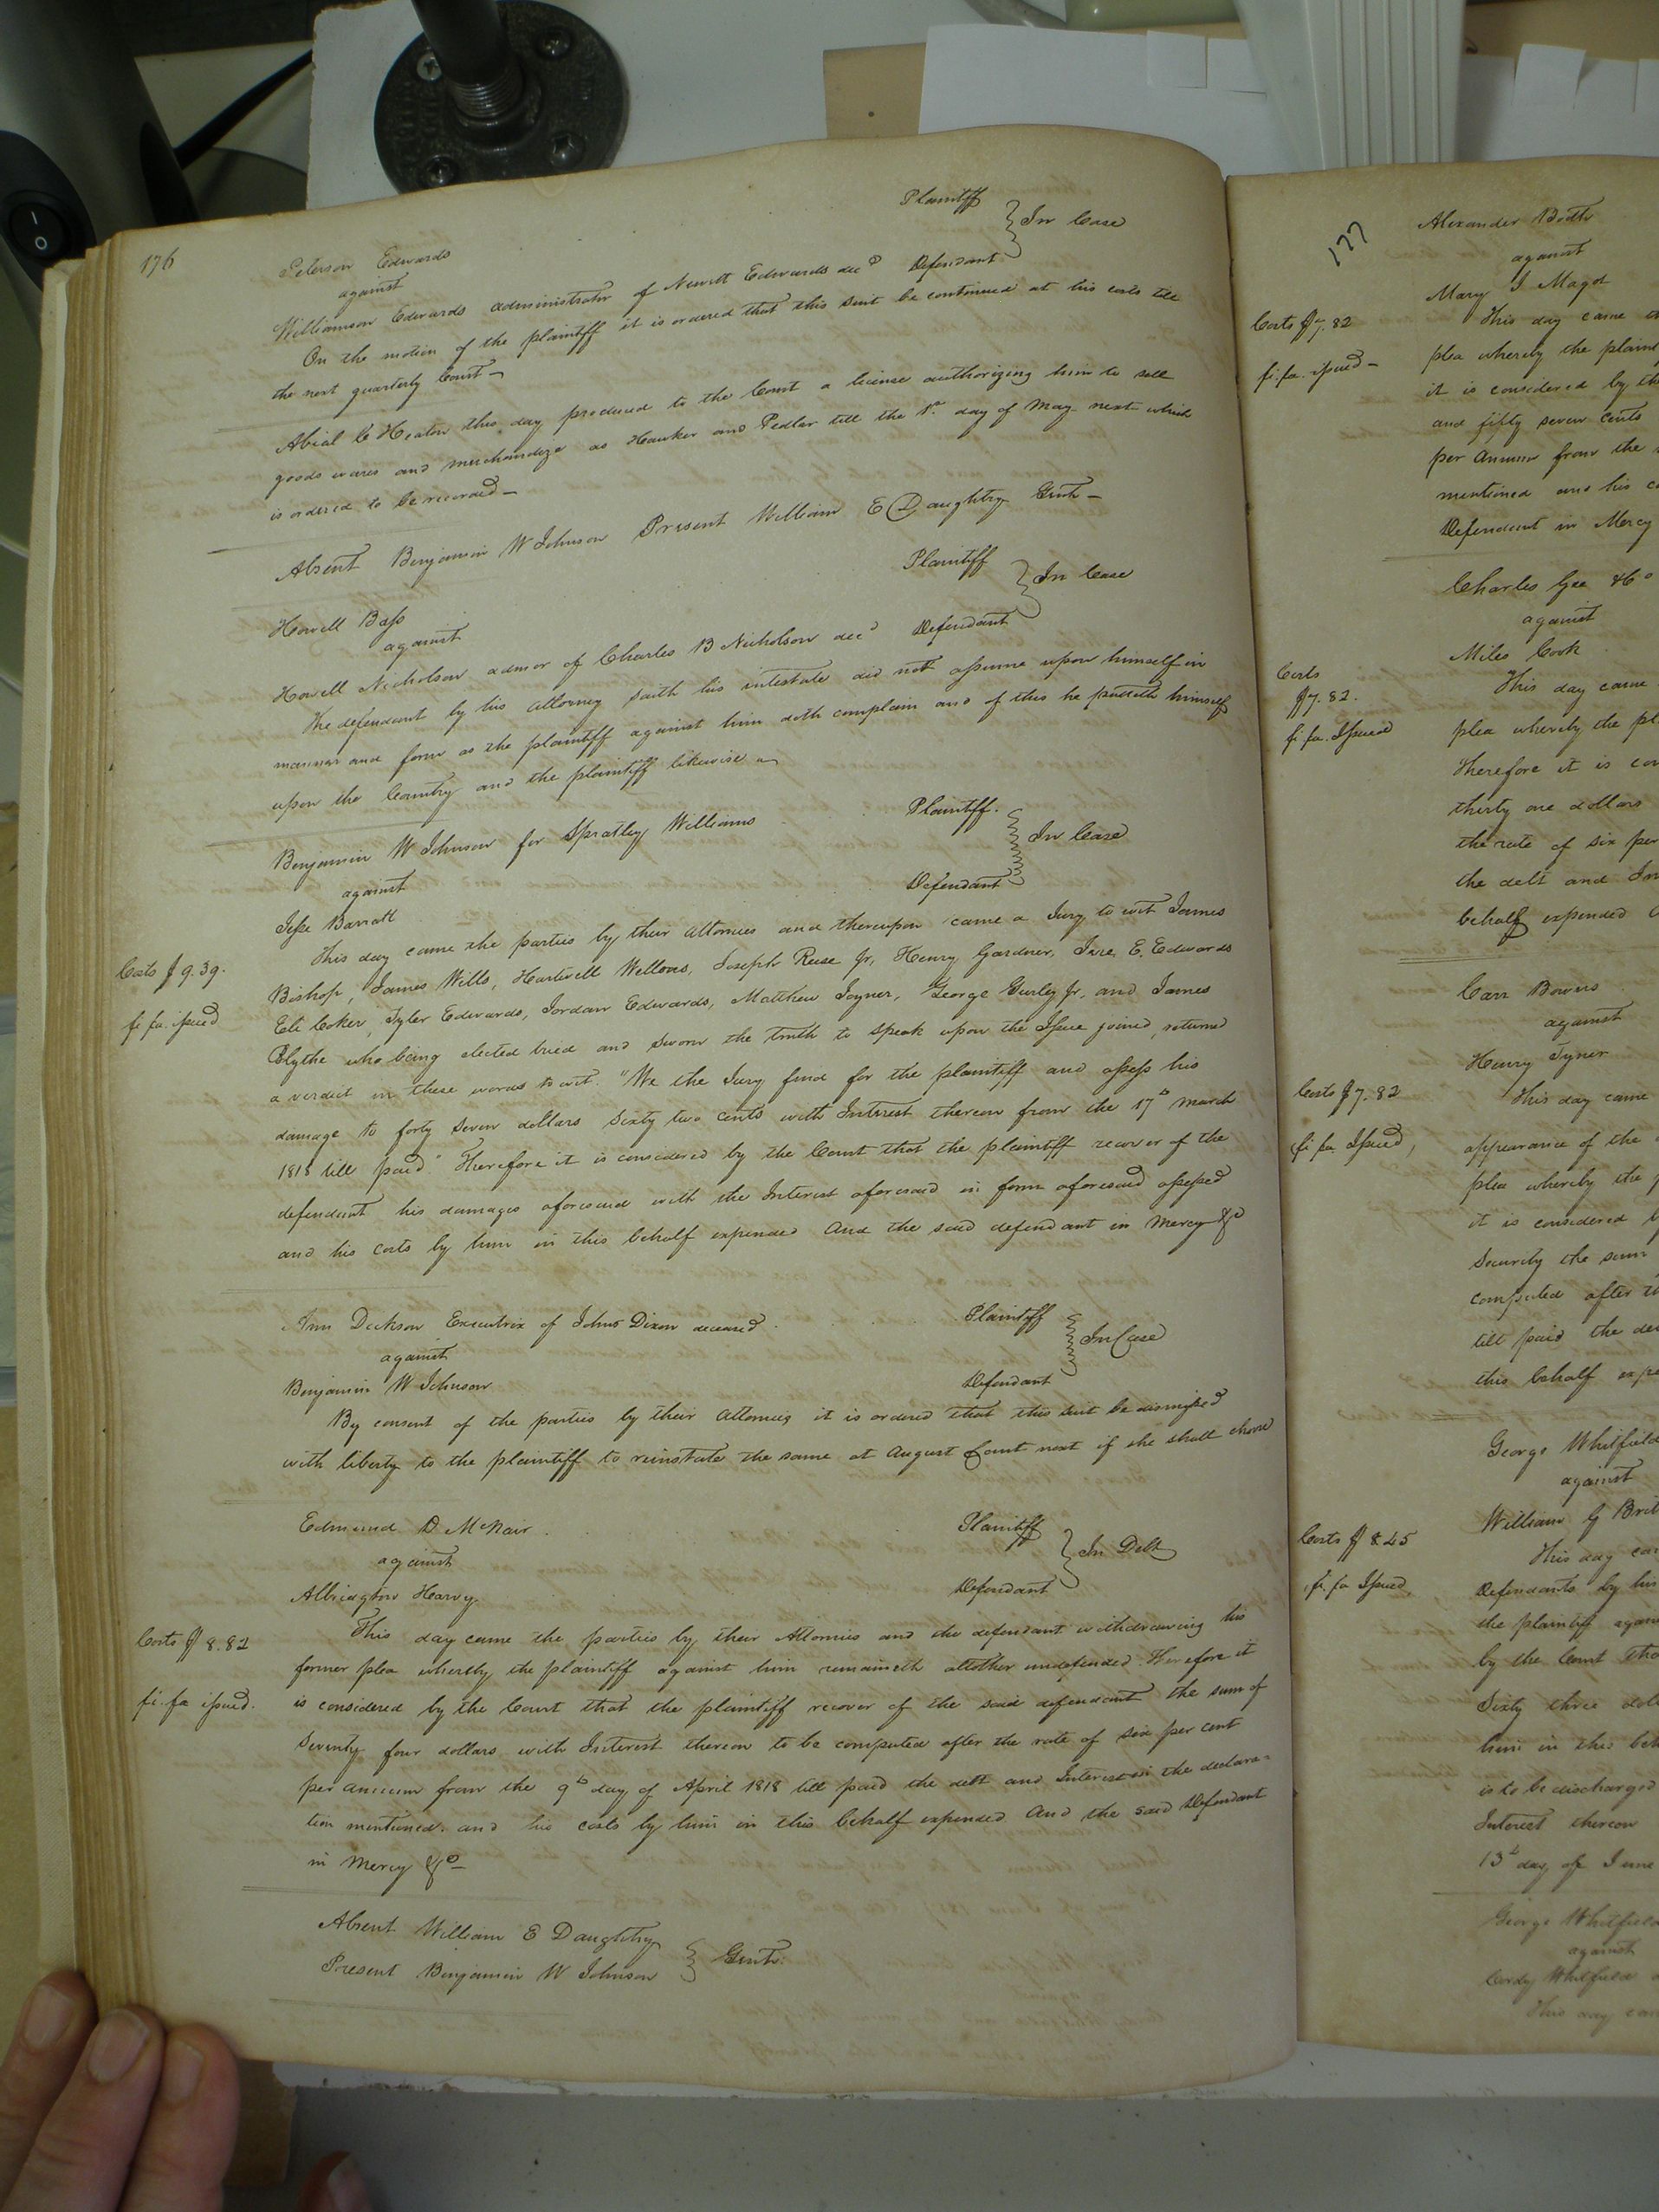 176
Peterson Edwards Plaintiff
against In Case
Williamson Edwards administrator of Newitt Edwards decd Defendant
On the motion of the plaintiff it is ordered that this suit be continued at his costs till
the next quarterly Court
Abial C Heaton this day produced to the Court a license authorizing him to sell
goods wares and merchandize as Hawker and Pedler till the 1st day of May next which
is ordered to be recorded
Absent Benjamin W Johnson Present William E Daughtry Gent
Howell Bass Plaintiff
against In Case
Howell Nicholson admor of Charles B Nicholson decd Defendant
The defendant by his attorney saith his intestate did not assume upon himself in
manner and form as the plaintiff against him doth complain and of this he putteth himself
upon the Country and the plaintiff likewise
Benjamin W Johnson for Spratley Williams Plaintiff.
against In Case
Jesse Barratt Defendant
This day came the parties by their Attornies and thereupon came a Jury to wit James
Costs $9.39.
Bishop, James Wills, Hartwell Wellons, Joseph Reese Jr, Henry Gardner, E. Edwards
fi fa. issued
Eli Coker, Tyler Edwards, Jordan Edwards, Matthew Joyner, George Gurley Jr, and James
Blythe who being elected tried and sworn the truth to speak upon the Issue joined, returned
a verdict in these words to wit. "We the Jury find for the plaintiff and assess his
damage to forty seven dollars sixty two cents with Interest thereon from the 17th March
1818 till paid." Therefore it is considered by the Court that the plaintiff recover of the
defendant his damages aforesaid with the Interest aforesaid in form aforesaid assessed
and his costs by him in this behalf expended And the said defendant in Mercy &c
Ann Dickson Executrix of John Dixon deceased Plaintiff
against In Case
Benjamin W Johnson Defendant
By consent of the parties by their Attornies it is ordered that this suit be dismissed
with liberty to the plaintiff to reinstate the same at August Court next if she shall choose
Edmund D McNair. Plaintiff
against In Debt
Albrington Harvy Defendant
This day came the parties by their Attornies and the defendant withdrawing his
Costs $8.82
former plea whereby the plaintiff against him remaineth altother undefended Therefore it
fi.fa issued.
is considered by the Court that the plaintiff recover of the said defendant the sum of
seventy four dollars with Interest thereon to be computed after the rate of six per cent
per annum from the 9th day of April 1818 till paid the debt and Interest in the declara=
tion mentioned. and his costs by him in this behalf expended And the said Defendant
in Mercy &c
Absent William E Daughtry
Present Benjamin W Johnson Gents.
177
Alexander
against
Mary J Magot
Costs $7.82
This day came
plea whereby the plain
fi.fa. issued
it is considered by th
and fifty seven Cents
per Annum from the
mentioned and his c
Defendant in Mercy
Charles Gee & Co
against
Miles Cook
Costs
$7.82.
This day came
fi.fa. Issued
plea whereby the pl
Therefore it is con
thirty one dollars
the rate of six per
the debt and In
behalf expended
Carr Bowers
against
Henry Tyner
Costs $7.82
This day came
fi fa Issued,
appearance of the
plea whereby the p
it is considered b
Security the sum
computed after th
till paid the de
this behalf expe
George Whitfield
against
William G Brit
Costs $8.45
This day ca
fi. fa Issued,
Defendants by his
the plaintiff again
by the Court tha
Sixty three dol
him in this beh
is to be discharged
Interest thereon
13th day of June
George Whitfield
against
Cordy Whitfield
This day ca